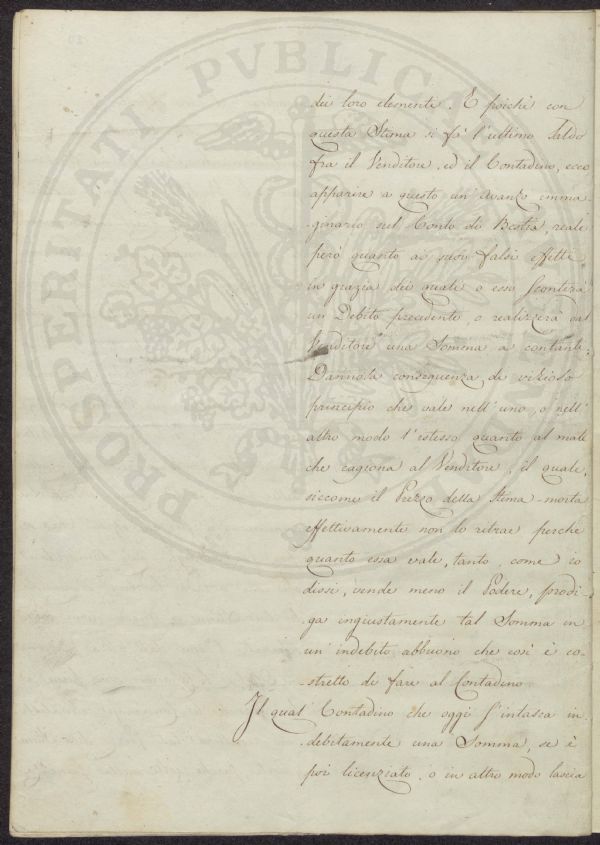 dei loro elementi. E poichè con
questa Stima si fà l'ultimo Saldo
fra il Venditore, ed il Contadino, ecco
apparire a questo un' avanzo imma-
-ginario sul Conto di Bestie, reale
però quanto ai suoi falsi effetti
in grazia dei quali o esso sconterà
un Debito precedente, o realizzerà dal
Venditore una Somma a contanti:
Dannosa conseguenza di vizioso
principio che vale nell' uno, o nell'
altro modo l'istesso quanto al male
che cagiona al Venditore, il quale,
siccome il Prezzo della Stima-morta
effettivamente non lo ritrae perchè
quanto essa vale, tanto, come io
dissi, vende meno il Podere, prodi-
ga ingiustamente tal Somma in
un' indebito abbuono che così è co-
-stretto di fare al Contadino
Il qual Contadino che oggi s'intasca in-
debitamente una Somma, se è
poi licenziato, o in altro modo lascia
PROSPERITATI PVBLICAE